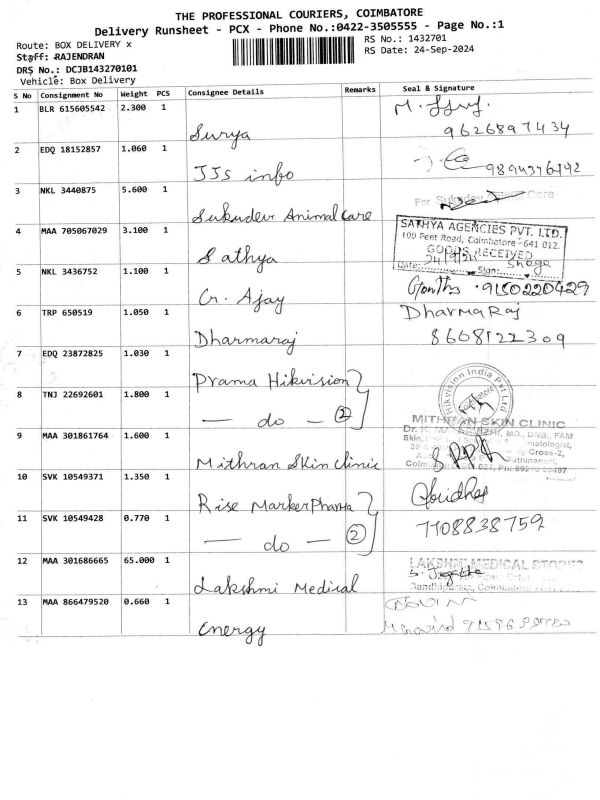 THE PROFESSIONAL COURIERS, COIMBATORE
Delivery Runsheet - PCX - Phone No.:0422-3505555 - Page No.:1
Route: BOX DELIVERY x
RS No.: 1432701
Staff: RAJENDRAN
RS Date: 24-Sep-2024
DRS No.: DCJB143270101
Vehicle: Box Delivery
S No Consignment No Weight PCS Consignee Details Remarks Seal & Signature
1 BLR 615605542 2.300 1 Surya
9626897434
2 EDQ 18152857 1.060 1 JJs info
3 NKL 3440875 5.600 1 Sukudev Animal Care
For Care
4 MAA 705067029 3.100 1 Sathya
SATHYA AGENCIES PVT. LTD.
109 Feet Road, Coimbatore - 641 012.
GOODS RECEIVED
Date: Sign:
5 NKL 3436752 1.100 1 Cr. Ajay
9150220429
6 TRP 650519 1.050 1 Dharmaraj
Dharmaraj
8608122309
7 EDQ 23872825 1.030 1 Prama Hikvision
8 TNJ 22692601 1.800 1 — do — 2
Hikvision India Pvt Ltd
Coimbatore
9 MAA 301861764 1.600 1 Mithran Skin Clinic
MITHRAN SKIN CLINIC
MD., DNB., FAM
10 SVK 10549371 1.350 1 Rise MarkerPharma
11 SVK 10549428 0.770 1 — do — 2
7708838759
12 MAA 301686665 65.000 1 Lakshmi Medical
LAKSHMI MEDICAL STORES
13 MAA 866479520 0.660 1 Energy